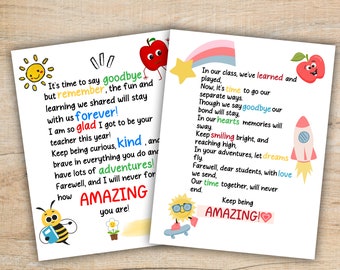 It's time to say goodbye
but remember, the fun and
learning we shared will stay
with us forever!
I am so glad I got to be your
teacher this year!
Keep being curious, kind, and
brave in everything you do and
have lots of adventures!
Farewell, and I will never forget
how
AMAZING
you are!
In our class, we've learned and
played,
Now, it's time to go our
separate ways.
Though we say goodbye our
bond will stay.
In our hearts memories will
sway.
Keep smiling bright, and
reaching high,
In your adventures, let dreams
fly.
Farewell, dear students, with love
we send,
Our time together, will never
end.
Keep being
AMAZING!